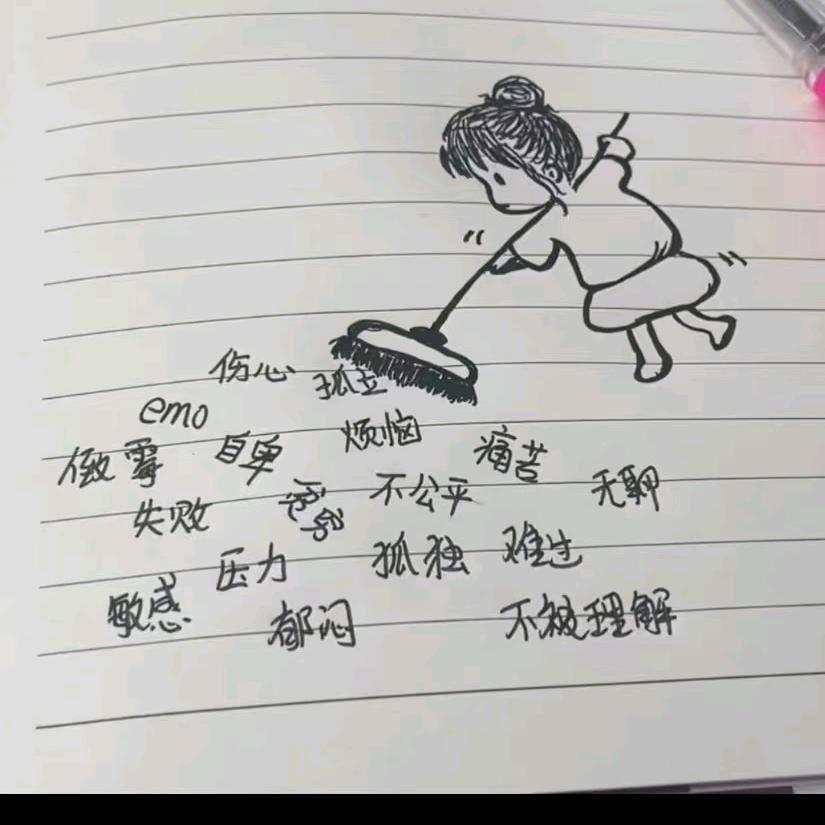 伤心 孤立
emo 烦恼
倒霉 自卑 痛苦
失败 贫穷 不公平 无聊
压力 孤独 难过
敏感 郁闷 不被理解